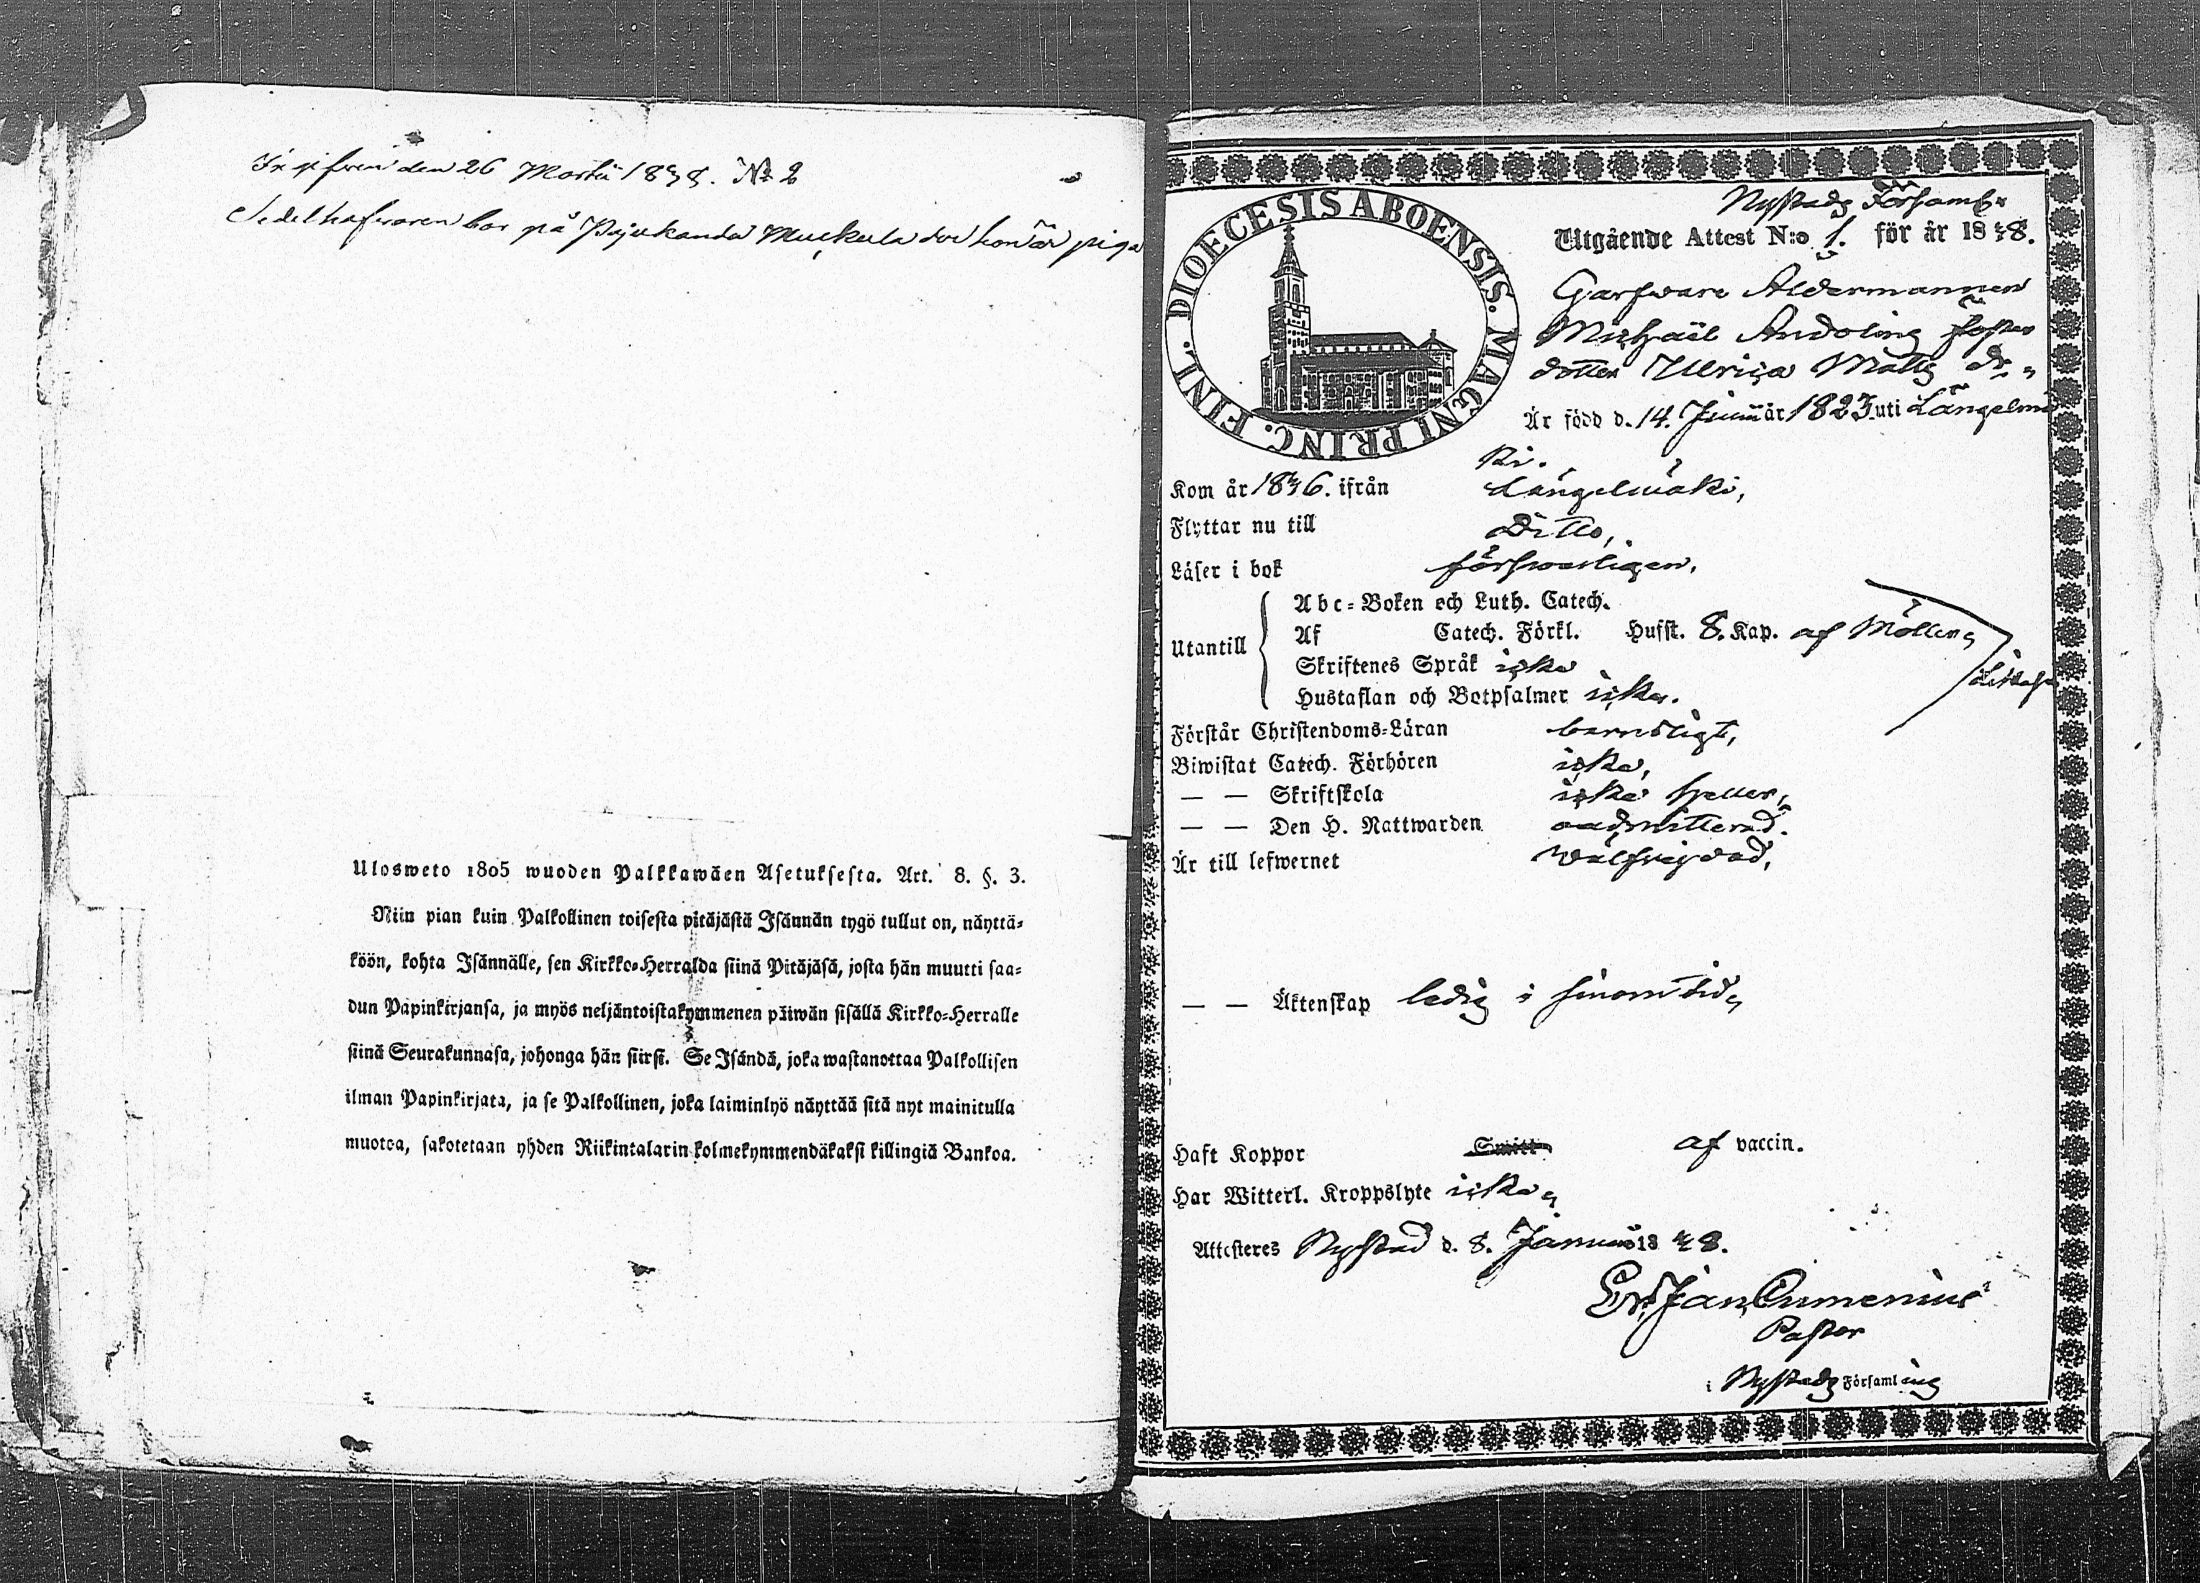 den 26 Martii 1838. No 2
Sedelhafwaren bor på Pajukanda Muckula der hon är piga
Ulosweto 1805 wuoden Palkkawäen Asetuksesta. Art. 8. §. 3.
Niin pian kuin Palkollinen toisesta pitäjästä Isännän tygö tullut on, näyttä-
köön, kohta Isännälle, sen Kirkko-Herralda siinä Pitäjäsä, josta hän muutti saa-
dun Papinkirjansa, ja myös neljäntoistakymmenen päiwän sisällä Kirkko-Herralle
siinä Seurakunnasa, johonga hän siirsi. Se Isändä, joka wastanottaa Palkollisen
ilman Papinkirjata, ja se Palkollinen, joka laiminlyö näyttää sitä nyt mainitulla
muotoa, sakotetaan yhden Riikintalarin kolmekymmendäkaksi killingiä Bankoa.
DIOECESIS ABOENSIS. MAGNI PRINC. FINL.
Nystads Församl.
Utgående Attest N:o 1. för år 1838.
Garfware Åldermannen
Michaël Andolins foster
dotter Ulrica Matts dr.
Är född d. 14. Junii år 1823. uti Längelmä
ki.
Kom år 1836. ifrån Längelmäki,
Flyttar nu till Ditto,
Läser i bok förswarligen.
Utantill
Abc-Boken och Luth. Catech.
Af Catech. Förkl. Husst. 8. Kap. af Möllers
Skriftenes Språk icke
Hustaflan och Botpsalmer icke.
Förstår Christendoms-Läran barnsligt,
Biwistat Catech. Förhören icke,
— — Skriftskola icke heller,
— — Den H. Nattwarden oadmitterad.
Är till lefwernet wälfrejdad,
— — Äktenskap ledig i sinom tid,
Haft Koppor Smitt af vaccin.
Har Witterl. Kroppslyte icke,
Attesteres Nystad d. 8. Januarii 1838.
Gr. Jan Cumenius
Pastor
i Nystads Församling